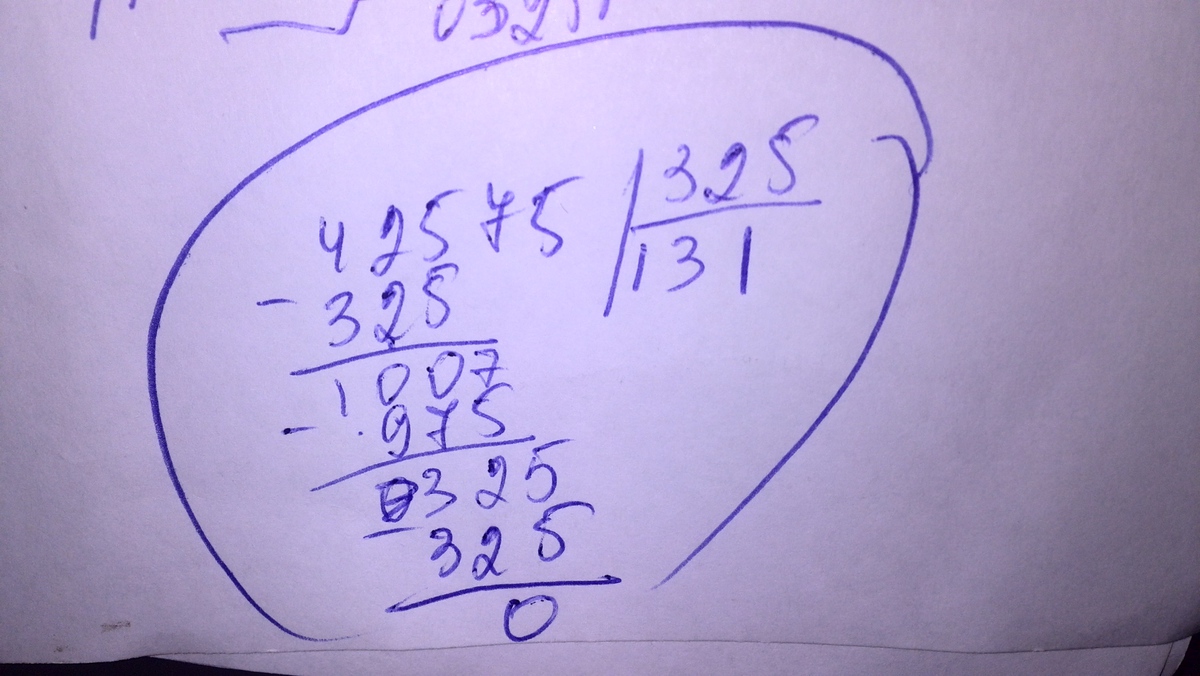 42575 325
- 325 131
1007
- 975
0325
- 325
0